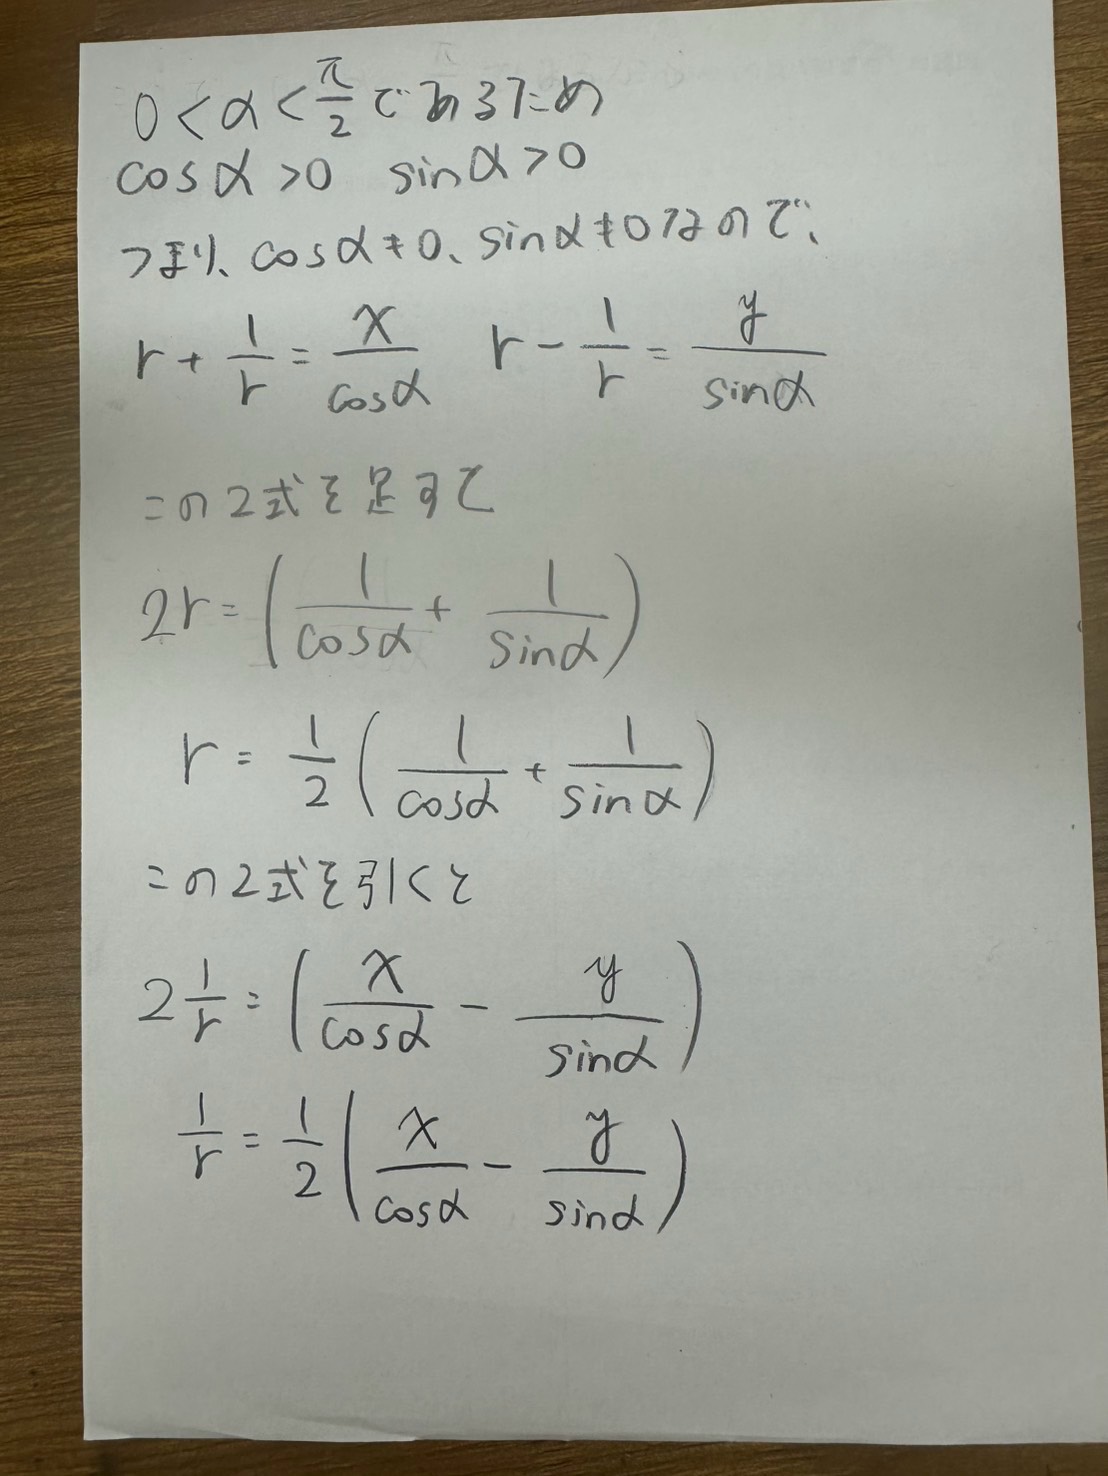 0<α<π/2であるため
cosα>0 sinα>0
つまり、cosα≠0、sinα≠0なので、
r+1/r=x/cosα r-1/r=y/sinα
この2式を足すて
2r=(1/cosα+1/sinα)
r=1/2(1/cosα+1/sinα)
この2式を引くと
2 1/r=(x/cosα-y/sinα)
1/r=1/2(x/cosα-y/sinα)